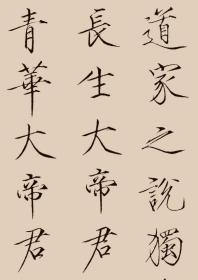 道家之說獨
長生大帝君
青華大帝君